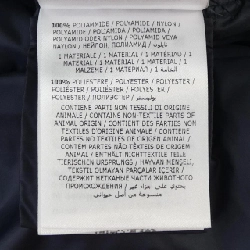 100% POLIAMMIDE / POLYAMIDE / NYLON /
POLYAMIDE / POLIAMIDA / POLIAMIDA /
POLYAMID ODER NYLON / POLYAMID VEYA
NAYLON / НЕЙЛОН, ПОЛИАМИД / نايلون
1 MATERIALE / 1 MATERIAL / 1 MATERIAL /
1 MATERIAL / 1 MATERIAL / 1 MATERIAL / 1
MALZEME / 1 МАТЕРИАЛ / 1 الخامة
100% POLIESTERE / POLYESTER / POLYESTER /
POLIÉSTER / POLIÉSTER / POLYESTER /
POLYESTER / بوليستر
CONTIENE PARTI NON TESSILI DI ORIGINE
ANIMALE / CONTAINS NON-TEXTILE PARTS OF
ANIMAL ORIGIN / CONTIENT DES PARTIES NON
TEXTILES D'ORIGINE ANIMALE / CONTIENE
PARTES NO TEXTILES DE ORIGEN ANIMAL /
CONTÉM PARTES NÃO TÊXTEIS DE ORIGEM
ANIMAL / ENTHÄLT NICHTTEXTILE TEILE
TIERISCHEN URSPRUNGS / HAYVAN MENŞELİ
TEKSTİL OLMAYAN PARÇALAR İÇERİR /
СОДЕРЖИТ НЕТКАНЫЕ ЧАСТИ ЖИВОТНОГО
ПРОИСХОЖДЕНИЯ / يحتوي على أجزاء غير
منسوجة من أصل حيواني